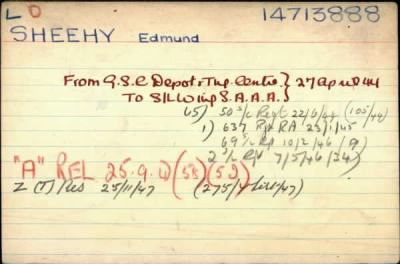 LD 14713888
SHEEHY Edmund
From G.S.C Depot & Trg. Centre } 27 Apr 44
To S/L Wing S.A.A.A. }
50 S/L Regt 22/6/44 (105/44)
1) 637 RA 23/1/45
69 S/L 10/2/46 (9)
2 S/L 7/5/46 (34)
"A" REL 25.9. (55) (52)
Z (T) Res 25/11/47 (275/ /47)